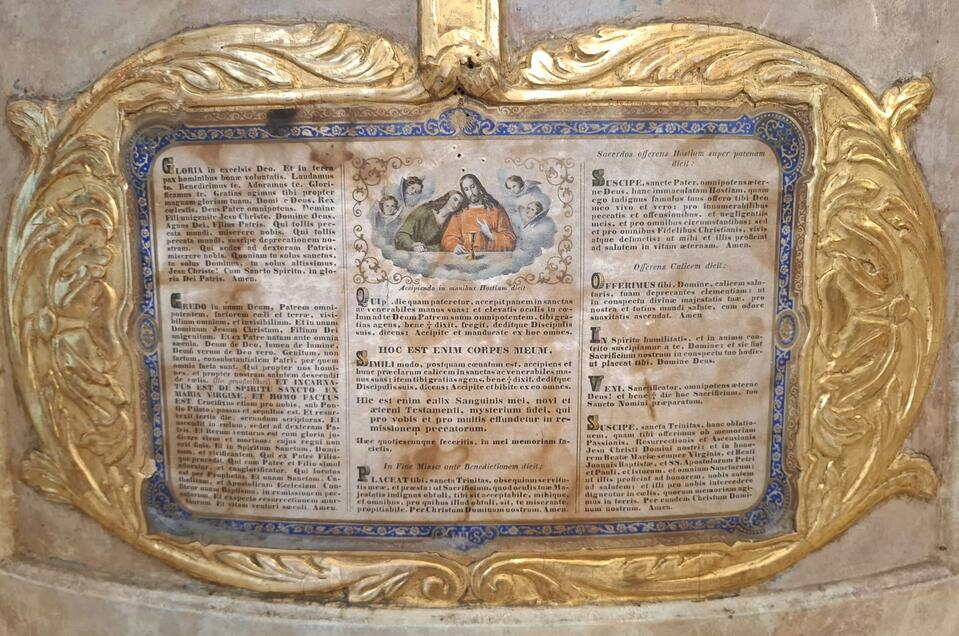 GLORIA in excelsis Deo. Et in terra
pax hominibus bonæ voluntatis. Laudamus
te. Benedicimus te. Adoramus te. Glori-
ficamus te. Gratias agimus tibi propter
magnam gloriam tuam. Domi e Deus, Rex
cœlestis, Deus Pater omnipotens. Domine
Fili unigenite Jesu Christe. Domine Deus,
Agnus Dei, Filius Patris. Qui tollis pec-
cata mundi, miserere nobis. Qui tollis
peccata mundi, suscipe deprecationem no-
stram. Qui sedes ad dexteram Patris,
miserere nobis. Quoniam tu solus sanctus,
tu solus Dominus, tu solus altissimus,
Jesu Christe! Cum Sancto Spiritu, in glo-
ria Dei Patris. Amen.
CREDO in unum Deum, Patrem omni-
potentem, factorem cœli et terræ, visi-
bilium omnium, et invisibilium. Et in unum
Dominum Jesum Christum, Filium Dei
unigenitum. Et ex Patre natum ante omnia
sæcula. Deum de Deo, lumen de lumine,
Deum verum de Deo vero. Genitum, non
factum, consubstantialem Patri, per quem
omnia facta sunt. Qui propter nos homi-
nes, et propter nostram salutem descendit
de cœlis. ET INCARNA-
TUS EST DE SPIRITU SANCTO EX
MARIA VIRGINE, ET HOMO FACTUS
EST. Crucifixus etiam pro nobis, sub Pon-
tio Pilato, passus et sepultus est. Et resur-
rexit tertia die, secundum scripturas. Et
ascendit in cœlum, sedet ad dexteram Pa-
tris. Et iterum venturus est cum gloria ju-
dicare vivos et mortuos; cujus regni non
erit finis. Et in Spiritum Sanctum, Domi-
num, et vivificantem. Qui ex Patre Filio-
que procedit. Qui cum Patre et Filio simul
adoratur, et conglorificatur. Qui locutus
est per Prophetas. Et unam Sanctam, Ca-
tholicam, et Apostolicam Ecclesiam. Con-
Baptisma, in remissionem pec-
catorum. Et exspecto resurrectionem mor-
tuorum. Et vitam venturi sæculi. Amen.
Accipiendo in manibus Hostiam dicit
QUI P die quam pateretur, accepit panem in sanctas
ac venerabiles manus suas: et elevatis oculis in cœ-
lum ad te Deum Patrem suum omnipotentem, tibi gra-
tias agens, bene ☩ dixit, fregit, deditque Discipulis
suis, dicens: Accipite et manducate ex hoc omnes.
HOC EST ENIM CORPUS MEUM.
SIMILI modo, postquam cœnatum est, accipiens et
hunc præclarum calicem in sanctas ac venerabiles ma-
nus suas; item tibi gratias agens, bene ☩ dixit, deditque
Discipulis suis, dicens: Accipite et bibite ex eo omnes.
Hic est enim calix Sanguinis mei, novi et
æterni Testamenti, mysterium fidei, qui
pro vobis et pro multis effundetur in re-
missionem peccatorum.
Hæc quotiescumque feceritis, in mei memoriam fa-
cietis.
In Fine Missæ ante Benedictionem dicit:
PLACEAT tibi, sancta Trinitas, obsequium servitu-
tis meæ, et præsta: ut Sacrificium, quod oculis tuæ Ma-
jestatis indignus obtuli, tibi sit acceptabile, mihique,
et omnibus, pro quibus illud obtuli, sit, te miserante,
propitiabile. Per Christum Dominum nostrum. Amen.
Sacerdos offerens Hostiam super patenam
dicit:
SUSCIPE, sancte Pater, omnipotens æter-
ne Deus, hanc immaculatam Hostiam, quam
ego indignus famulus tuus offero tibi Deo
meo vivo et vero; pro innumerabilibus
peccatis et offensionibus, et negligentiis
meis, et pro omnibus circumstantibus; sed
et pro omnibus Fidelibus Christianis, vivis
atque defunctis: ut mihi et illis proficiat
ad salutem in vitam æternam. Amen.
Offerens Calicem dicit:
OFFERIMUS tibi, Domine, calicem salu-
taris, tuam deprecantes clementiam: ut
in conspectu divinæ majestatis tuæ, pro
nostra et totius mundi salute, cum odore
suavitatis ascendat. Amen
IN Spiritu humilitatis, et in animo con-
trito suscipiamur a te, Domine; et sic fiat
Sacrificium nostrum in conspectu tuo hodie,
ut placeat tibi, Domine Deus.
VENI, Sanctificator, omnipotens æterne
Deus! et bene ☩ dic hoc Sacrificium, tuo
Sancto Nomini præparatum.
SUSCIPE, sancta Trinitas, hanc oblatio-
nem, quam tibi offerimus ob memoriam
Passionis, Resurrectionis et Ascensionis
Jesu Christi Domini nostri et in hono-
rem Beatæ Mariæ semper Virginis, et Beati
Joannis Baptistæ, et SS. Apostolorum Petri
et Pauli, et istorum, et omnium Sanctorum:
ut illis proficiat ad honorem, nobis autem
ad salutem: et illi pro nobis intercedere
dignentur in cœlis, quorum memoriam agi-
mus in terris. Per eundem Christum Domi-
num nostrum. Amen.